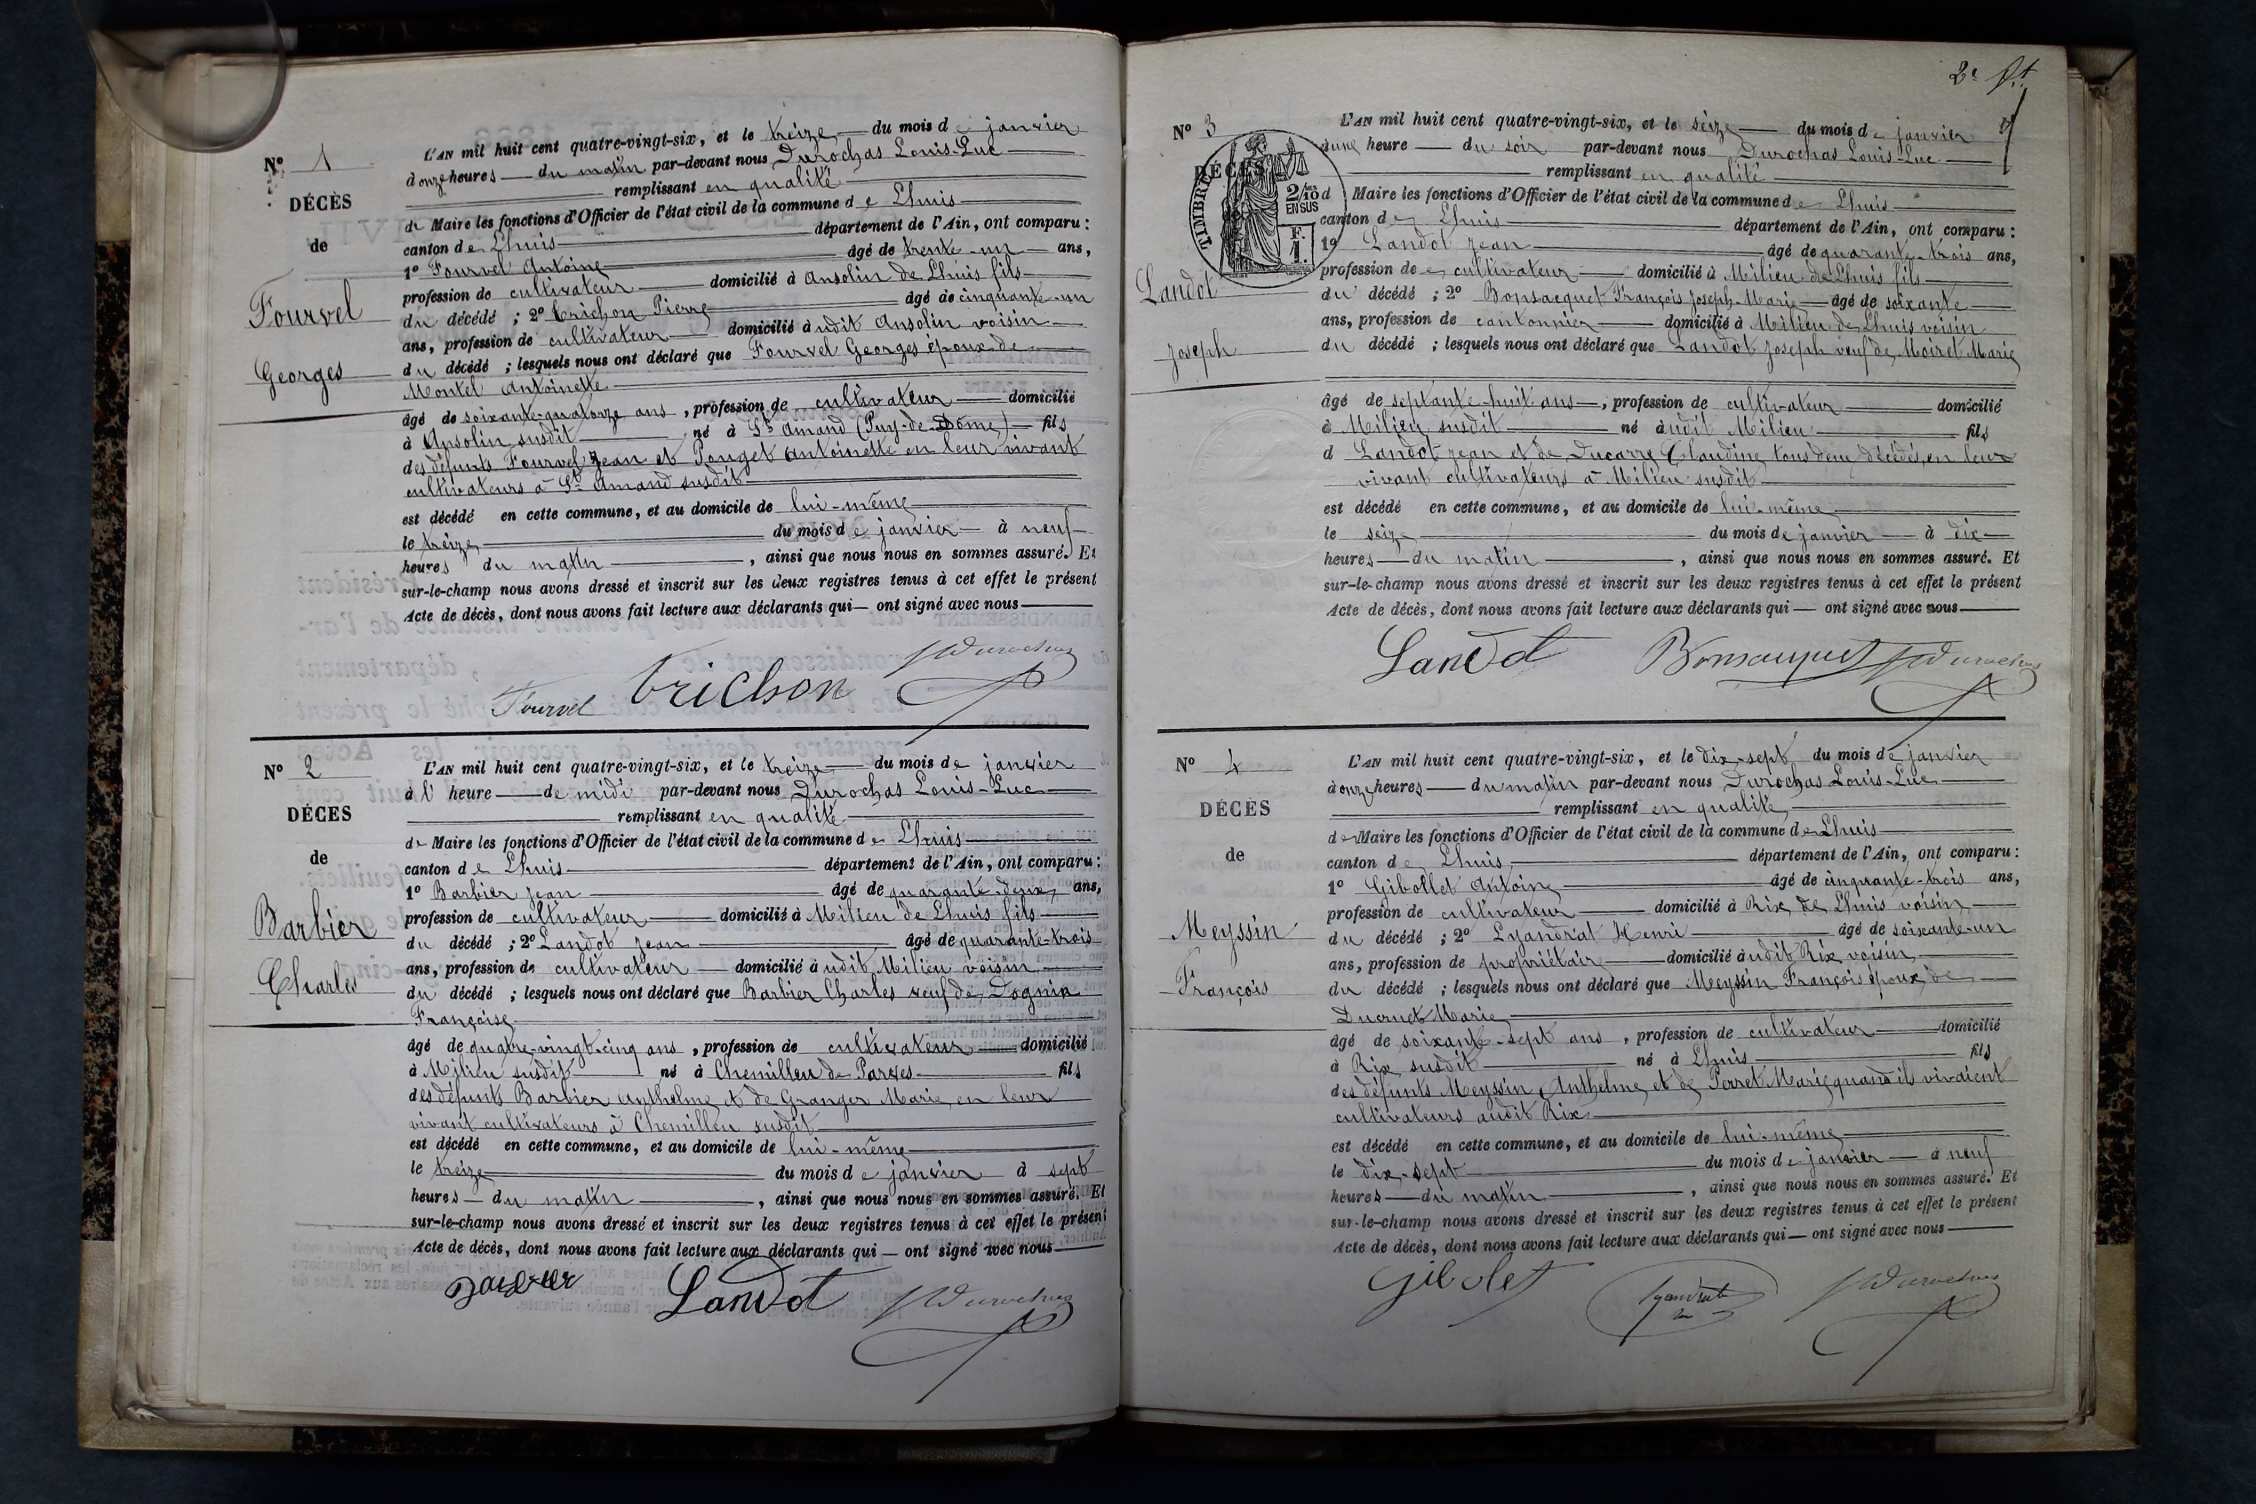 N° 1
DÉCÈS
de
Fourvel
Georges
L'AN mil huit cent quatre-vingt-six, et le treize du mois de janvier
à onze heures du matin par-devant nous Durochas Louis-Luc
remplissant en qualité
de Maire les fonctions d'Officier de l'état civil de la commune de Lhuis
canton de Lhuis département de l'Ain, ont comparu :
1° Fourvel Antoine âgé de trente-un ans,
profession de cultivateur domicilié à Ansolin de Lhuis fils
du décédé ; 2° Crichon Pierre âgé de cinquante-un
ans, profession de cultivateur domicilié à udit Ansolin voisin
du décédé ; lesquels nous ont déclaré que Fourvel Georges époux de
Montel Antoinette
âgé de soixante-quatorze ans, profession de cultivateur domicilié
à Ansolin susdit né à St Amand (Puy-de-Dôme) fils
des défunts Fourvel Jean et Pouget Antoinette en leur vivant
cultivateurs à St Amand susdit
est décédé en cette commune, et au domicile de lui-même
le treize du mois de janvier à neuf
heures du matin, ainsi que nous nous en sommes assuré. Et
sur-le-champ nous avons dressé et inscrit sur les deux registres tenus à cet effet le présent
Acte de décès, dont nous avons fait lecture aux déclarants qui — ont signé avec nous
Fourvel Crichon Durochas
N° 2
DÉCES
de
Barbier
Charles
L'AN mil huit cent quatre-vingt-six, et le treize du mois de janvier
à l' heure de midi par-devant nous Durochas Louis-Luc
remplissant en qualité
de Maire les fonctions d'Officier de l'état civil de la commune de Lhuis
canton de Lhuis département de l'Ain, ont comparu :
1° Barbier Jean âgé de quarante-deux ans,
profession de cultivateur domicilié à Milieu de Lhuis fils
du décédé ; 2° Landot Jean âgé de quarante-trois
ans, profession de cultivateur domicilié à udit Milieu voisin
du décédé ; lesquels nous ont déclaré que Barbier Charles veuf de Dognin
Françoise
âgé de quatre-vingt-cinq ans, profession de cultivateur domicilié
à Milieu susdit né à Chemilleu de Parves fils
des défunts Barbier Anthelme et de Granger Marie en leur
vivant cultivateurs à Chemilleu susdit
est décédé en cette commune, et au domicile de lui-même
le treize du mois de janvier à sept
heures du matin, ainsi que nous nous en sommes assuré. Et
sur-le-champ nous avons dressé et inscrit sur les deux registres tenus à cet effet le présent
Acte de décès, dont nous avons fait lecture aux déclarants qui — ont signé avec nous
Barbier Landot Durochas
2e
N° 3
DÉCÈS
TIMBRE
2/10
EN SUS
F.
1.
Landot
Joseph
L'AN mil huit cent quatre-vingt-six, et le seize du mois de janvier
à une heure du soir par-devant nous Durochas Louis-Luc
remplissant en qualité
d Maire les fonctions d'Officier de l'état civil de la commune de Lhuis
canton de Lhuis département de l'Ain, ont comparu :
1° Landot Jean âgé de quarante-trois ans,
profession de cultivateur domicilié à Milieu de Lhuis fils
du décédé ; 2° Bonsacquet François Joseph-Marie âgé de soixante
ans, profession de cantonnier domicilié à Milieu de Lhuis voisin
du décédé ; lesquels nous ont déclaré que Landot Joseph veuf de Moiret Marie
âgé de septante-huit ans, profession de cultivateur domicilié
à Milieu susdit né à udit Milieu fils
d Landot Jean et de Ducarre Claudine tous deux décédés, en leur
vivant cultivateurs à Milieu susdit
est décédé en cette commune, et au domicile de lui-même
le seize du mois de janvier à dix
heures du matin, ainsi que nous nous en sommes assuré. Et
sur-le-champ nous avons dressé et inscrit sur les deux registres tenus à cet effet le présent
Acte de décès, dont nous avons fait lecture aux déclarants qui — ont signé avec nous
Landot Bonsacquet Durochas
N° 4
DÉCÈS
de
Meyssin
François
L'AN mil huit cent quatre-vingt-six, et le dix-sept du mois de janvier
à onze heures du matin par-devant nous Durochas Louis-Luc
remplissant en qualité
de Maire les fonctions d'Officier de l'état civil de la commune de Lhuis
canton de Lhuis département de l'Ain, ont comparu :
1° Gibollet Antoine âgé de cinquante-trois ans,
profession de cultivateur domicilié à Rix de Lhuis voisin
du décédé ; 2° Lyandrat Henri âgé de soixante-un
ans, profession de propriétaire domicilié à udit Rix voisin
du décédé ; lesquels nous ont déclaré que Meyssin François époux de
Ducruet Marie
âgé de soixante-sept ans, profession de cultivateur domicilié
à Rix susdit né à Lhuis fils
des défunts Meyssin Anthelme et de Perret Marie quand ils vivaient
cultivateurs audit Rix
est décédé en cette commune, et au domicile de lui-même
le dix-sept du mois de janvier à neuf
heures du matin, ainsi que nous nous en sommes assuré. Et
sur-le-champ nous avons dressé et inscrit sur les deux registres tenus à cet effet le présent
Acte de décès, dont nous avons fait lecture aux déclarants qui — ont signé avec nous
Gibolet Lyandrat Durochas